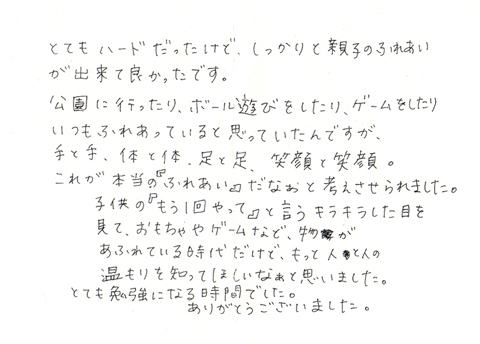 とてもハードだったけど、しっかりと親子のふれあい
が出来て良かったです。
公園に行ったり、ボール遊びをしたり、ゲームをしたり
いつもふれあっていると思っていたんですが、
手と手、体と体、足と足、笑顔と笑顔。
これが本当の『ふれあい』だなぁと考えさせられました。
子供の『もう1回やって』と言うキラキラした目を
見て、おもちゃやゲームなど、物が
あふれている時代だけど、もっと人と人の
温もりを知ってほしいなぁと思いました。
とても勉強になる時間でした。
ありがとうございました。